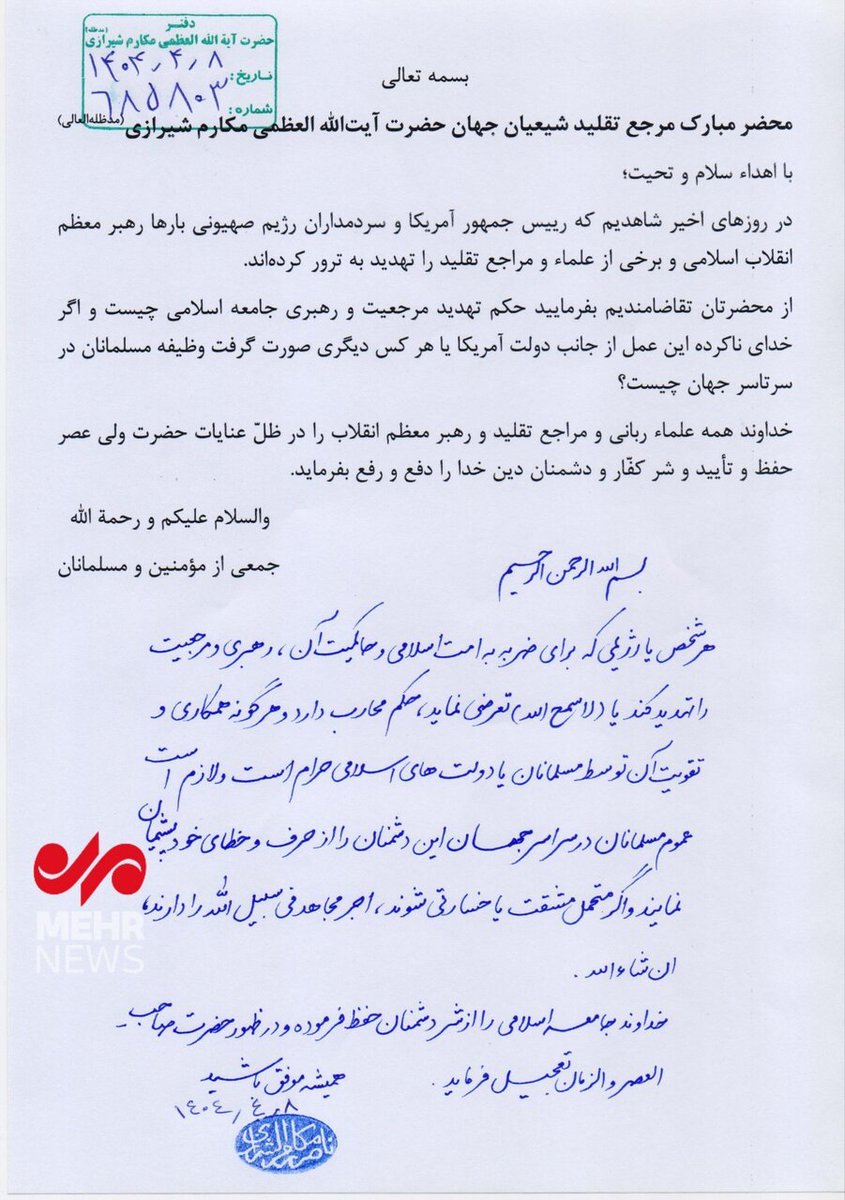 دفتر
حضرت آیة الله العظمی مکارم شیرازی (مدظله)
تاریخ: ۱۴۰۴٫۴٫۸
شماره: ۶۸۵۸۰۳
بسمه تعالی
محضر مبارک مرجع تقلید شیعیان جهان حضرت آیت‌الله العظمی مکارم شیرازی (مدظله‌العالی)
با اهداء سلام و تحیت؛
در روزهای اخیر شاهدیم که رییس جمهور آمریکا و سردمداران رژیم صهیونی بارها رهبر معظم
انقلاب اسلامی و برخی از علماء و مراجع تقلید را تهدید به ترور کرده‌اند.
از محضرتان تقاضامندیم بفرمایید حکم تهدید مرجعیت و رهبری جامعه اسلامی چیست و اگر
خدای ناکرده این عمل از جانب دولت آمریکا یا هر کس دیگری صورت گرفت وظیفه مسلمانان در
سرتاسر جهان چیست؟
خداوند همه علماء ربانی و مراجع تقلید و رهبر معظم انقلاب را در ظلّ عنایات حضرت ولی عصر
حفظ و تأیید و شر کفّار و دشمنان دین خدا را دفع و رفع بفرماید.
والسلام علیکم و رحمة الله
جمعی از مؤمنین و مسلمانان
بسم الله الرحمن الرحیم
هر شخص یا رژیمی که برای ضربه به امت اسلامی و حاکمیت آن، رهبری و مرجعیت
را تهدید کند یا (لاسمح الله) تعرضی نماید، حکم محارب دارد و هرگونه همکاری و
تقویت آن توسط مسلمانان یا دولت های اسلامی حرام است و لازم است
عموم مسلمانان در سراسر جهان این دشمنان را از حرف و خطای خود پشیمان
نمایند و اگر متحمل مشقت یا خسارتی شوند، اجر مجاهد فی سبیل الله را دارند،
ان شاء الله.
خداوند جامعه اسلامی را از شر دشمنان حفظ فرموده و در ظهور حضرت صاحب
العصر و الزمان تعجیل فرماید.
همیشه موفق باشید
۱۴۰۴٫۴٫۸
ناصر مکارم الشیرازی
MEHR
NEWS